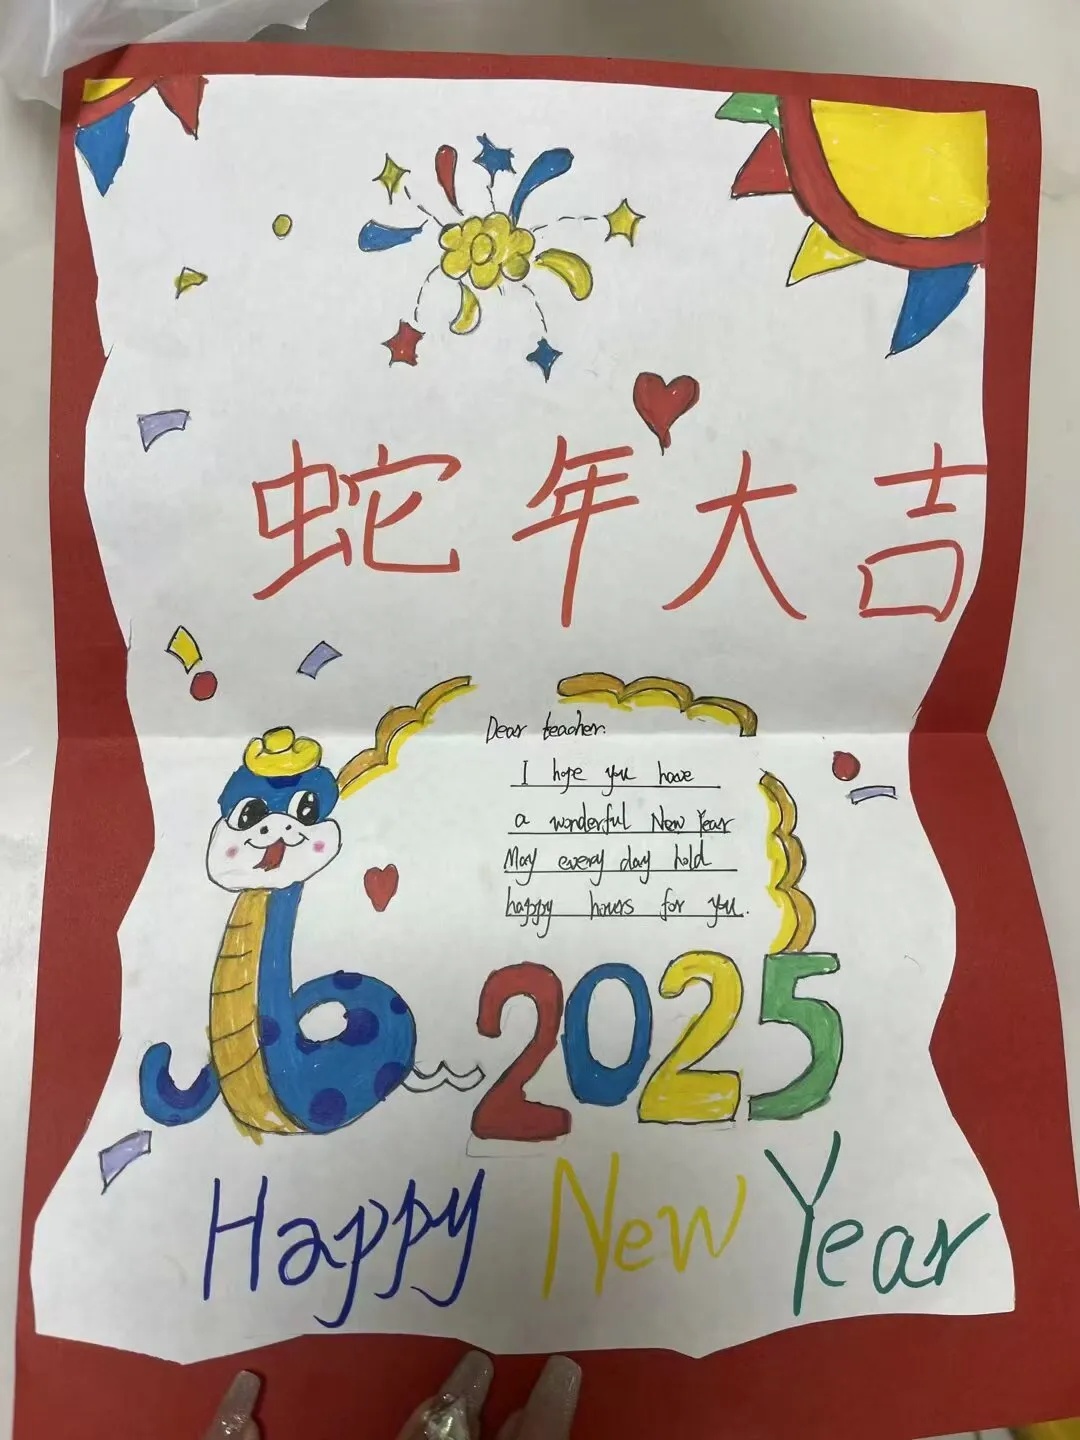 蛇年大吉
Dear teacher:
I hope you have
a wonderful New Year
May every day hold
happy hours for you.
2025
Happy New Year